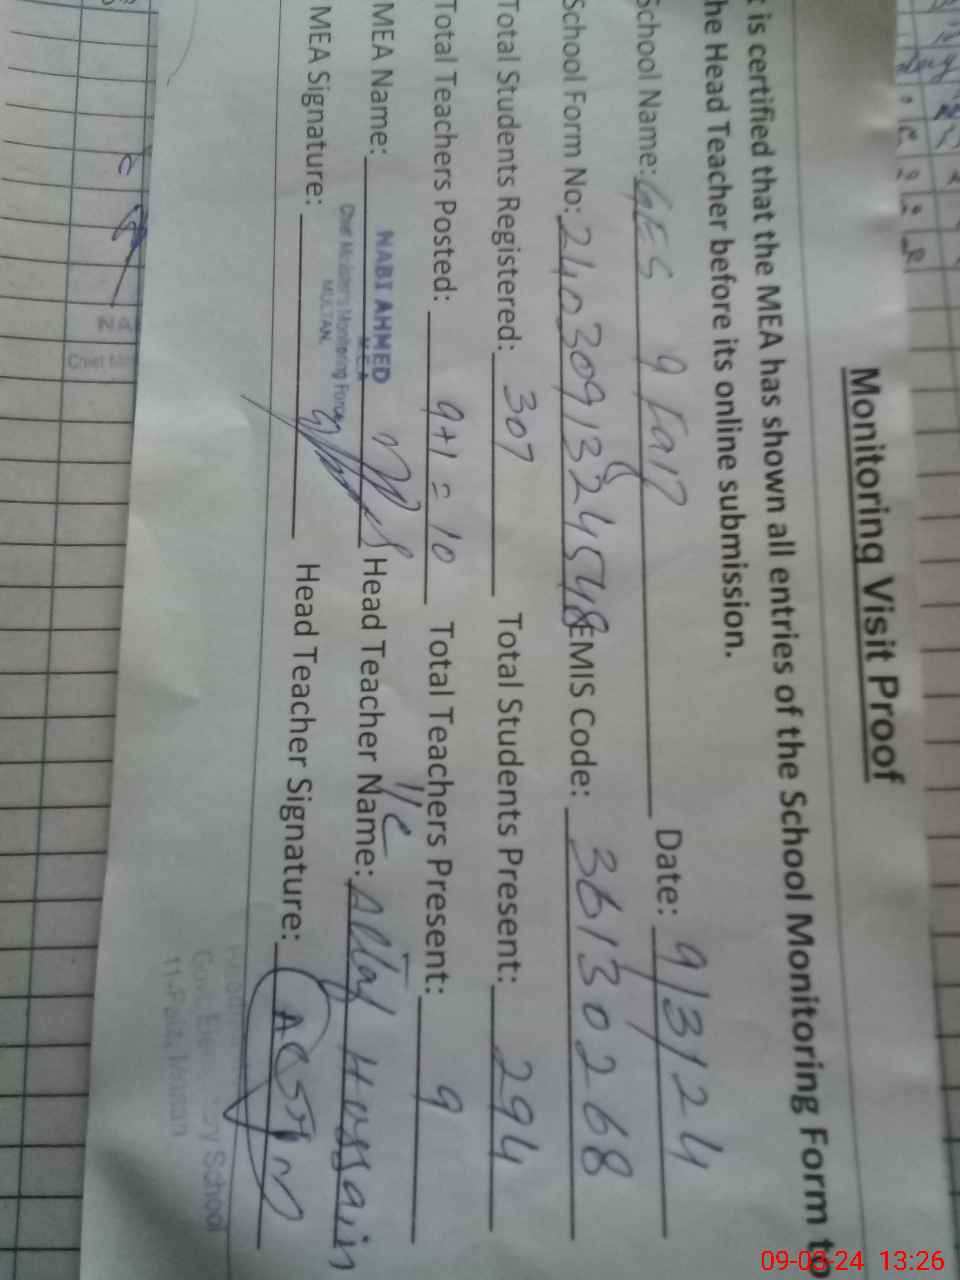 Monitoring Visit Proof
is certified that the MEA has shown all entries of the School Monitoring Form to
he Head Teacher before its online submission.
School Name: GES 9 Faiz Date: 9/3/24
School Form No: 2403091324548 EMIS Code: 36130268
Total Students Registered: 307 Total Students Present: 294
Total Teachers Posted: 9+1 = 10 Total Teachers Present: 9
MEA Name: NABI AHMED Head Teacher Name: Hussain
M.E.A
Chief Minister's Monitoring Force
MULTAN.
MEA Signature: Head Teacher Signature:
School
09-03-24 13:26